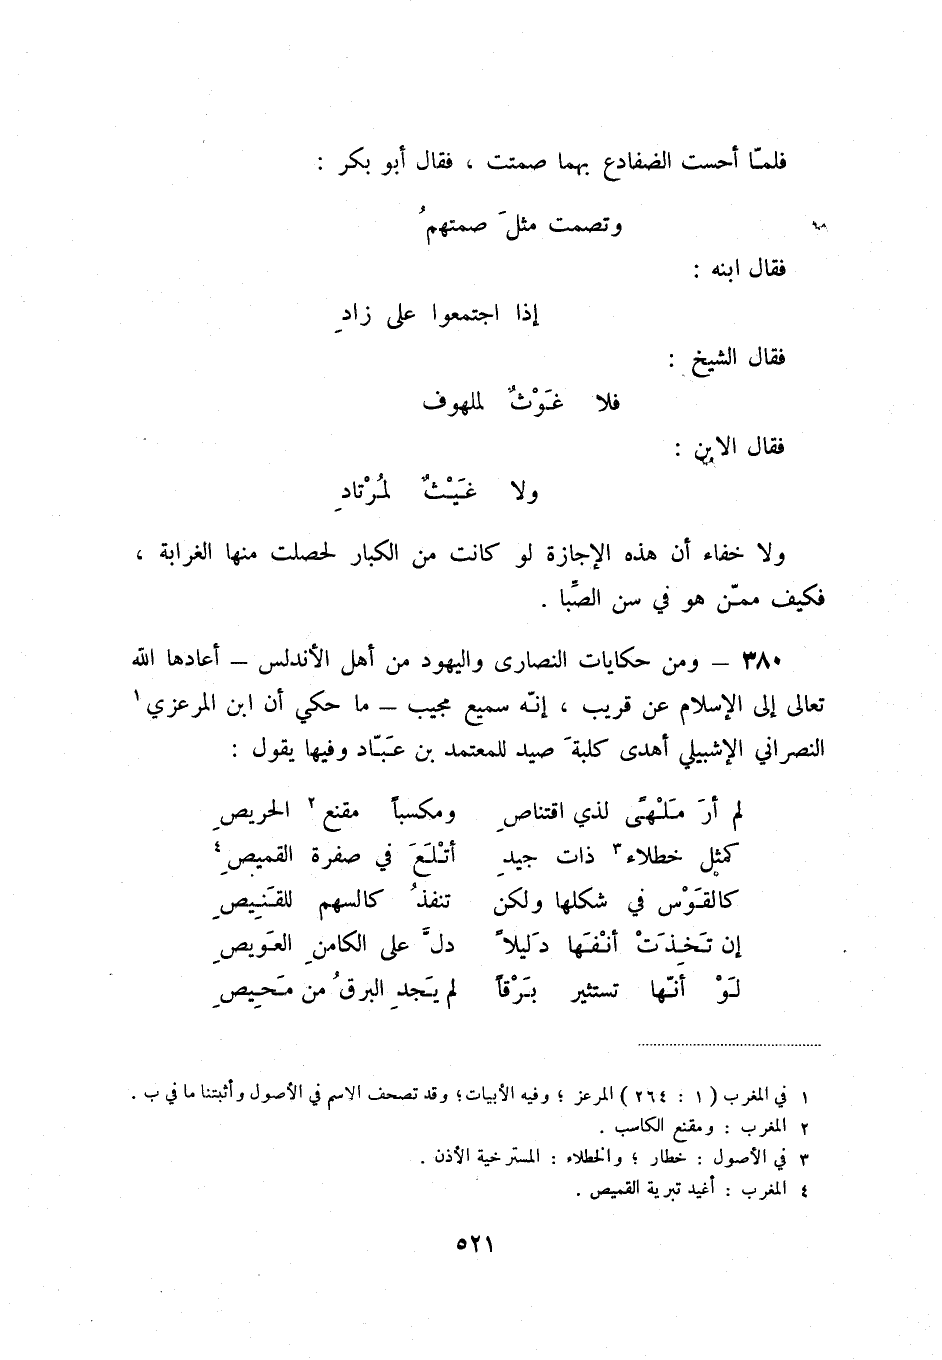 فلمّا أحست الضفادع بهما صمتت ، فقال أبو بكر :
وتصمت مثلَ صمتهمُ
فقال ابنه :
إذا اجتمعوا على زادِ
فقال الشيخ :
فلا غَوْثٌ لملهوف
فقال الابن :
ولا غَيْثٌ لمُرْتادِ
ولا خفاء أن هذه الإجازة لو كانت من الكبار لحصلت منها الغرابة ،
فكيف ممّن هو في سن الصِّبا .
٣٨٠ – ومن حكايات النصارى واليهود من أهل الأندلس – أعادها الله
تعالى إلى الإسلام عن قريب ، إنّه سميع مجيب – ما حكي أن ابن المرعزي ١
النصراني الإشبيلي أهدى كلبةَ صيد للمعتمد بن عَبّاد وفيها يقول :
لم أرَ مَلْهًى لذي اقتناصِ ومكسباً مقنع ٢ الحريصِ
كمثلِ خطلاء ٣ ذات جيدِ أتْلَعَ في صفرة القميصِ ٤
كالقَوْس في شكلها ولكن تنفذُ كالسهم للقَنِيصِ
إن تَخِذَتْ أنْفَها دَليلاً دلَّ على الكامنِ العَويصِ
لَوْ أنّها تستثير بَرْقاً لم يَجدِ البرقُ من مَحِيصِ
١ في المغرب ( ١ : ٢٦٤ ) المرعز ؛ وفيه الأبيات؛ وقد تصحف الاسم في الأصول وأثبتنا ما في ب .
٢ المغرب : ومقنع الكاسب .
٣ في الأصول : خطار ؛ والخطلاء : المسترخية الأذن .
٤ المغرب : أغيد تبرية القميص .
٥٢١